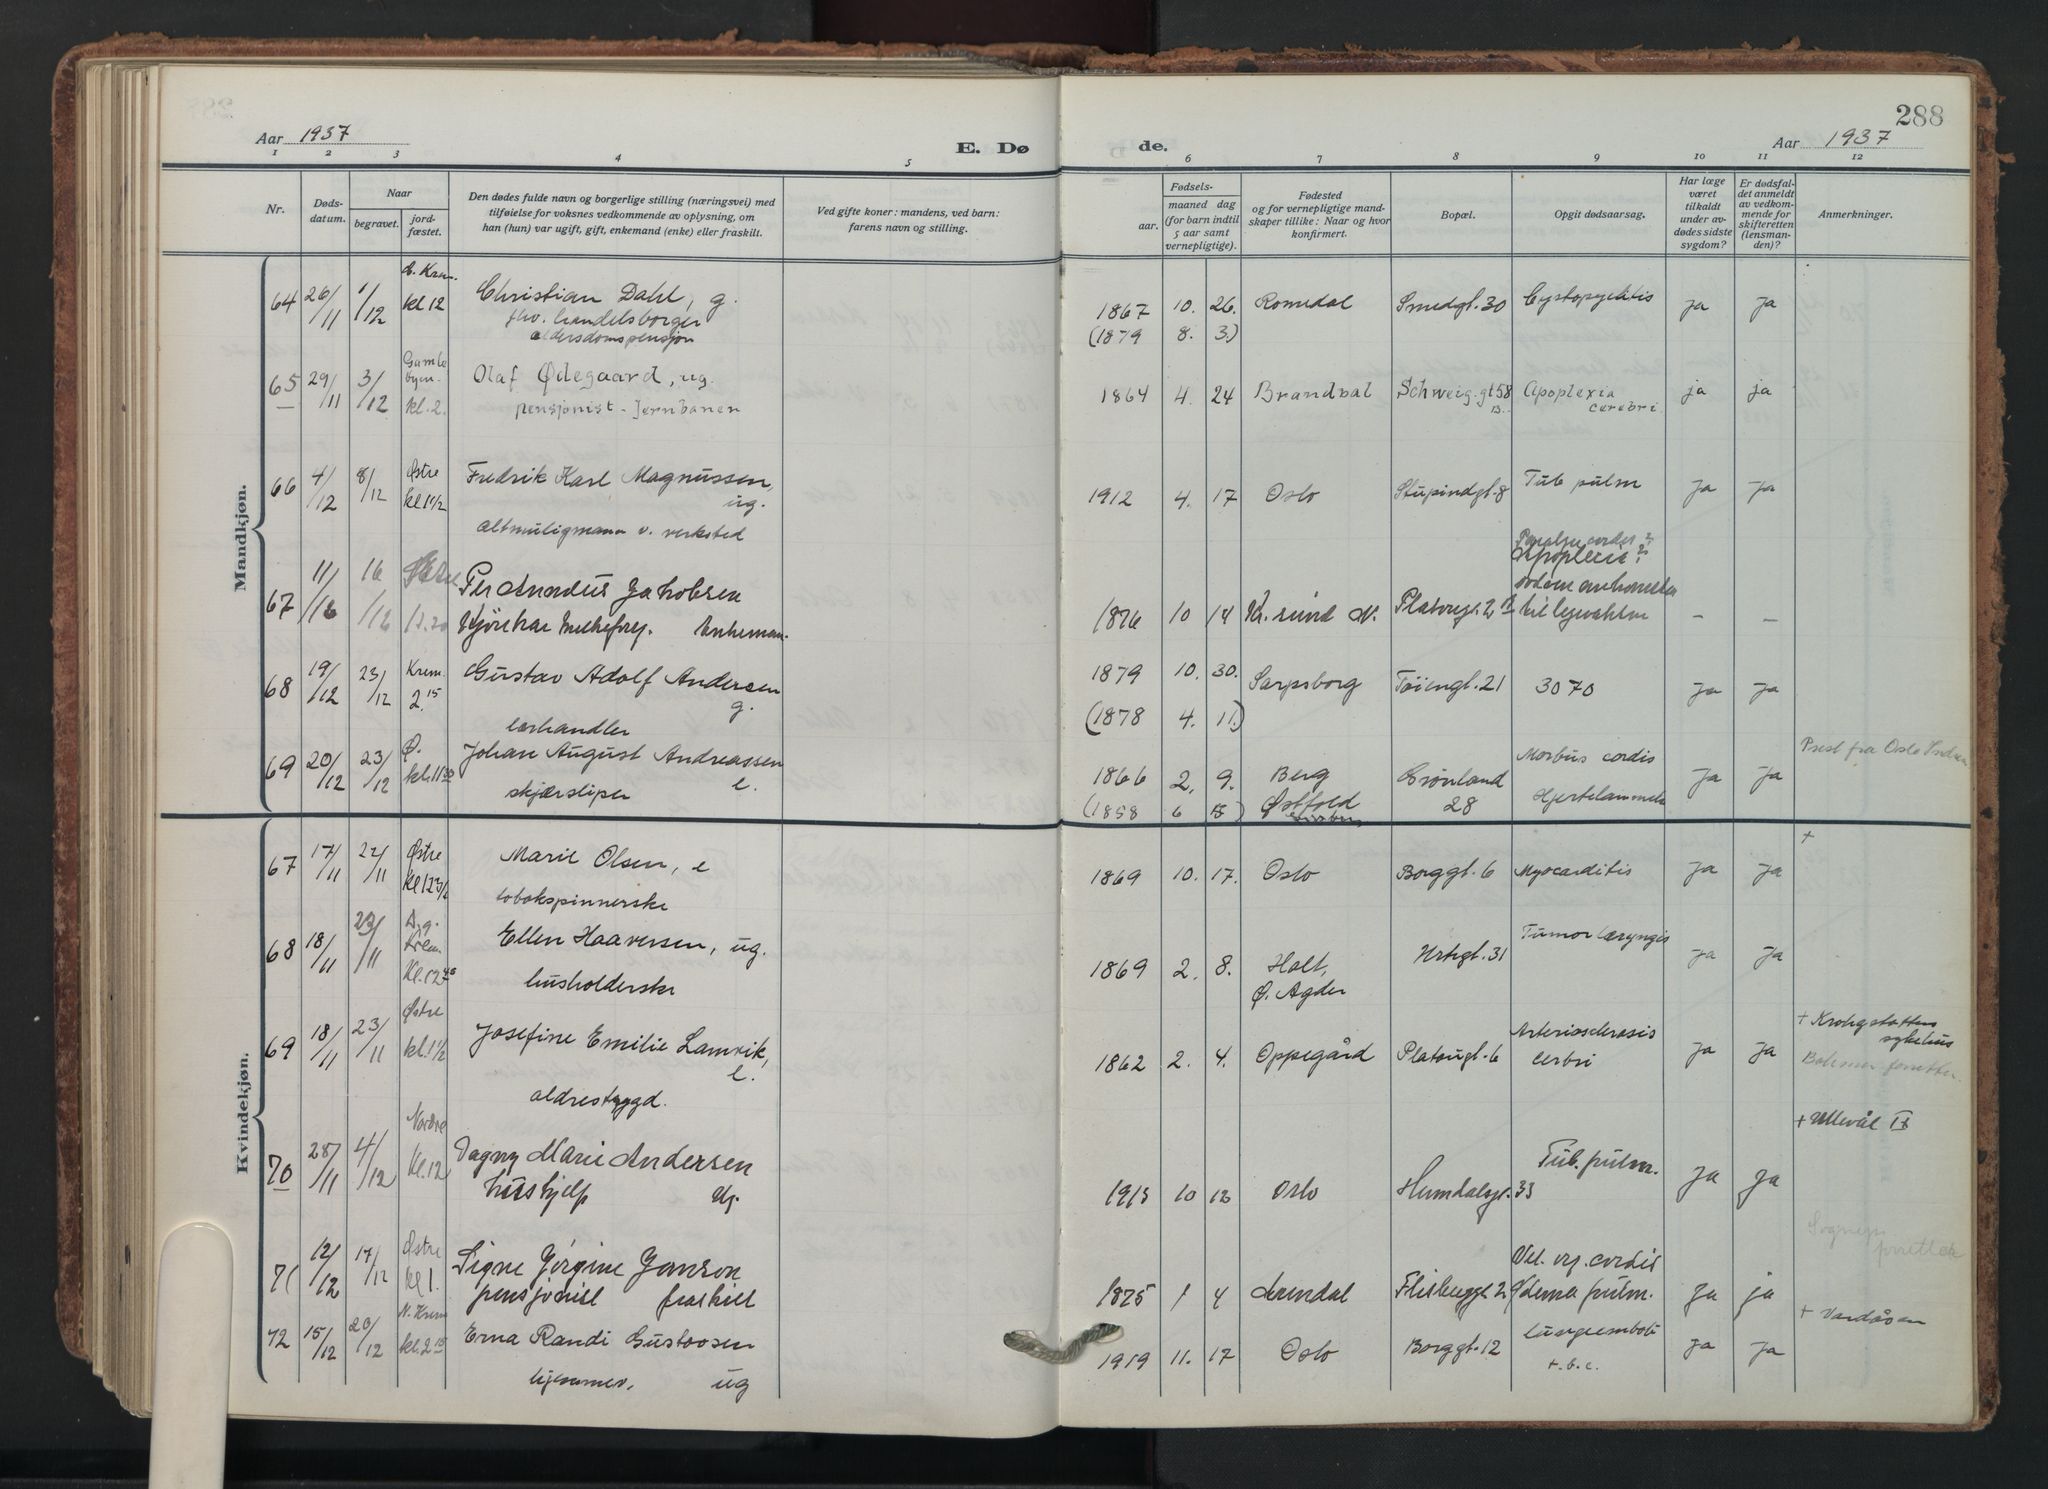 288
Aar 1937
E. Dø
de.
Aar 1937
1 2 3 4 5 6 7 8 9 10 11 12
Nr.
Døds-
datum.
Naar
begravet.
jord-
fæstet.
Den dødes fulde navn og borgerlige stilling (næringsvei) med
tilføielse for voksnes vedkommende av oplysning, om
han (hun) var ugift, gift, enkemand (enke) eller fraskilt.
Ved gifte koner: mandens, ved barn:
farens navn og stilling.
Fødsels-
aar. maaned dag
(for barn indtil
5 aar samt
vernepligtige).
Fødested
og for vernepligtige mand-
skaper tillike: Naar og hvor
konfirmert.
Bopæl.
Opgit dødsaarsag.
Har læge
været
tilkaldt
under av-
dødes sidste
sygdom?
Er dødsfal-
det anmeldt
av vedkom-
mende for
skifteretten
(lensman-
den)?
Anmerkninger.
Mandkjøn.
64 26/11 1/12 kl 12 Christian Dahl, g. 1867 10. 26. Romedal Smedgt. 30 Cystopyelitis ja ja
fhv. handelsborger
aldersdomspensjon (1879 8. 3.)
65 29/11 3/12 Gamle
byen.
kl. 2. Olaf Ødegaard, ug. 1864 4. 24 Brandval Schweig.gt 58 B. Apoplexia
cerebri ja ja
pensjonist - Jernbanen
66 4/12 8/12 Østre
kl 1 1/2 Fredrik Karl Magnussen,
ug. 1912 4. 17 Oslo Stupindgt. 8 Tub pulm ja ja
altmuligmann v. verksted
67 11/12 16/12 Per Amadeus Jakobsen
Enkeman. 1876 10 14 Kr.sund N. Platougt. 2 Apoplexia? – –
68 19/12 23/12 Krem.
2.15 Gustav Adolf Andersen
g. 1879 10. 30. Sarpsborg Tøiengt. 21 3070 ja ja
lærhandler (1878 4. 11.)
69 20/12 23/12 Ø.
kl. 11 30 Johan August Andreassen
e. 1866 2. 9. Berg
Østfold Grønland
28 Morbus cordis
Hjertelammelse ja ja Prest fra Oslo
skjærsliper (1858 6
Kvindekjøn.
67 17/11 22/11 Østre
kl 12 3/4 Marie Olsen, e 1869 10. 17. Oslo Borggt. 6 Myocarditis ja ja +
tobakspinnerske
68 18/11 23/11 Krem.
kl. 12 45 Ellen Haaversen, ug. 1869 2. 8. Holt,
Ø. Agder Urtegt. 31 Tumor laryngis ja ja
husholderske
69 18/11 23/11 Østre
kl. 1 1/2 Josefine Emilie Lamvik,
e. 1862 2. 4. Oppegård Platougt. 6 Arteriosclerosis
cerbri ja ja + Krohgstøttens
sykehus
aldrestrygd.
70 28/11 4/12 Nordre
kl. 12 Dagny Marie Andersen
hushjelp Ug. 1915 10 12 Oslo Humdalsgt. 33 Tub. pulm. ja ja + Ullevål II
71 12/12 17/12 Østre
kl 1. Signe Jørgine Janson
pensjonist fraskilt 1875 1 4 Arendal Flisbyggt 2 Vit. org. cordis
Ødema pulm. ja ja
72 15/12 20/12 N. Krem
kl. 2 15 Erna Randi Gustavsen
hjemmev. ug 1919 11. 17 Oslo Borggt. 12 Lungeemboli
t.b.c. ja ja + Vardåsen